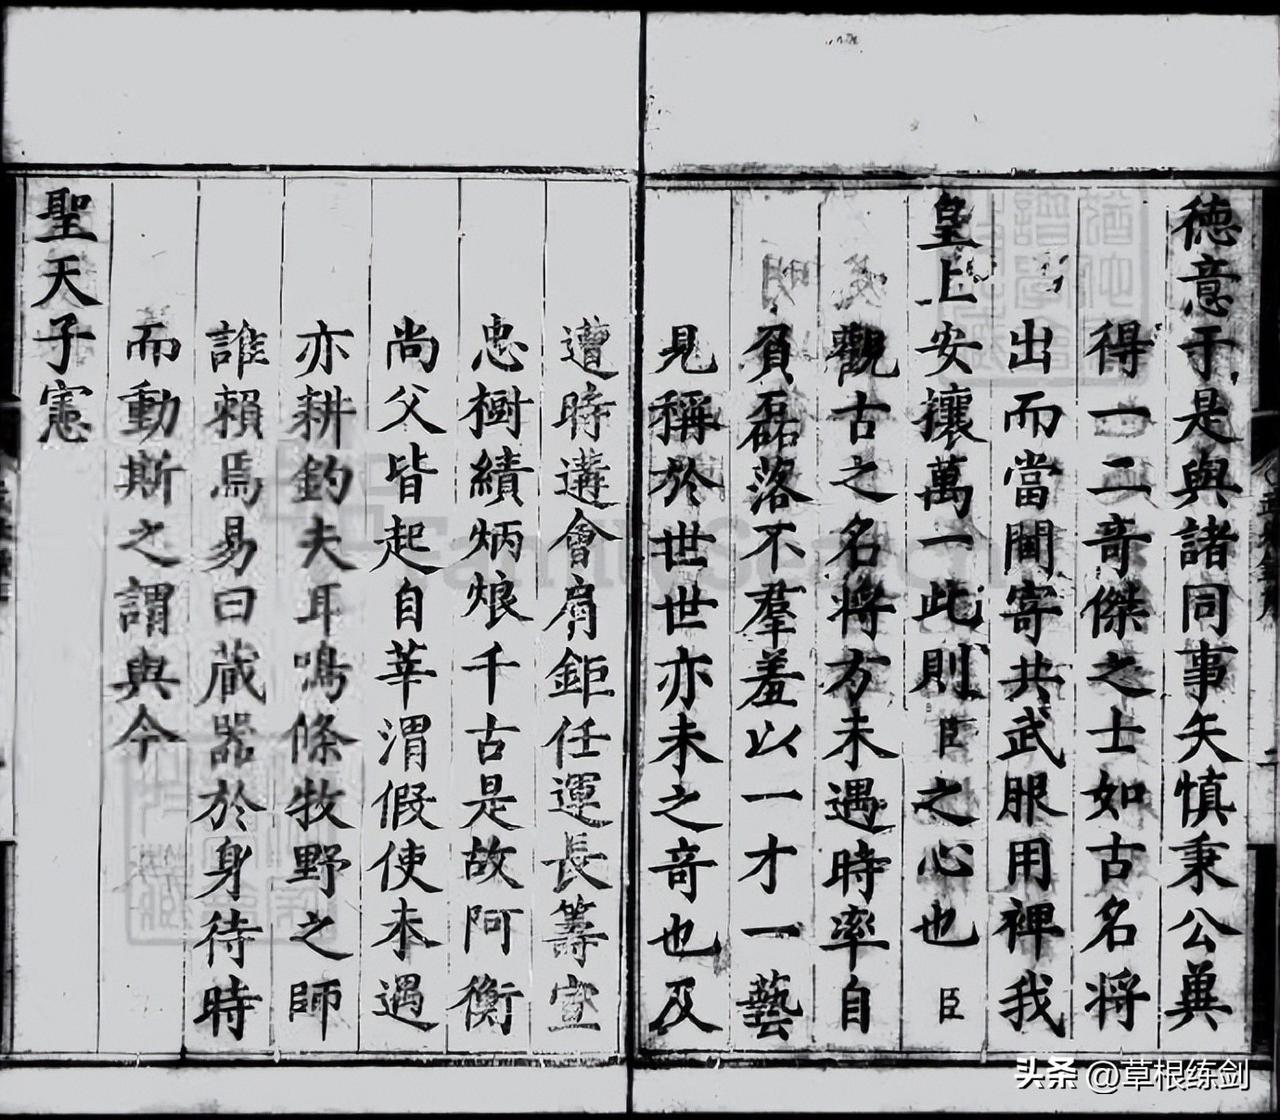 德意于是與諸同事矢慎秉公兾
得一二竒傑之士如古名將
出而當閫寄共武服用裨我
皇上安攘萬一此則臣之心也臣
觀古之名將方未遇時率自
負磊落不羣羞以一才一藝
見稱於世世亦未之竒也及
遭時遘會肩鉅任運長籌宣
忠樹績炳烺千古是故阿衡
尚父皆起自莘渭假使未遇
亦耕釣夫耳鳴條牧野之師
誰賴焉易曰蔵器於身待時
而動斯之謂與今
聖天子憲
FamilySearch
头条 @草根练剑